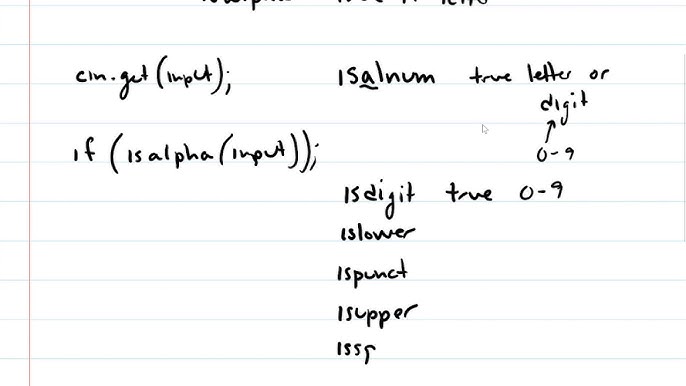 cin.get(input);
isalnum true letter or
digit
if (isalpha(input));
0-9
isdigit true 0-9
islower
ispunct
isupper
issp